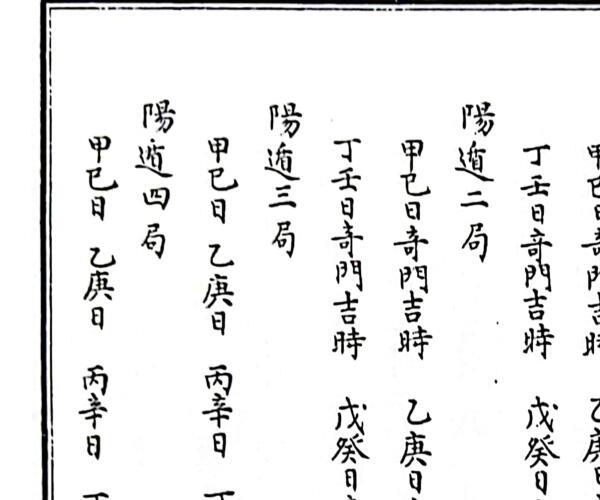 甲巳日奇門吉時　乙庚日
丁壬日奇門吉時　戊癸日
陽遁二局
甲巳日奇門吉時　乙庚日
丁壬日奇門吉時　戊癸日
陽遁三局
甲巳日　乙庚日　丙辛日　丁
陽遁四局
甲巳日　乙庚日　丙辛日　丁